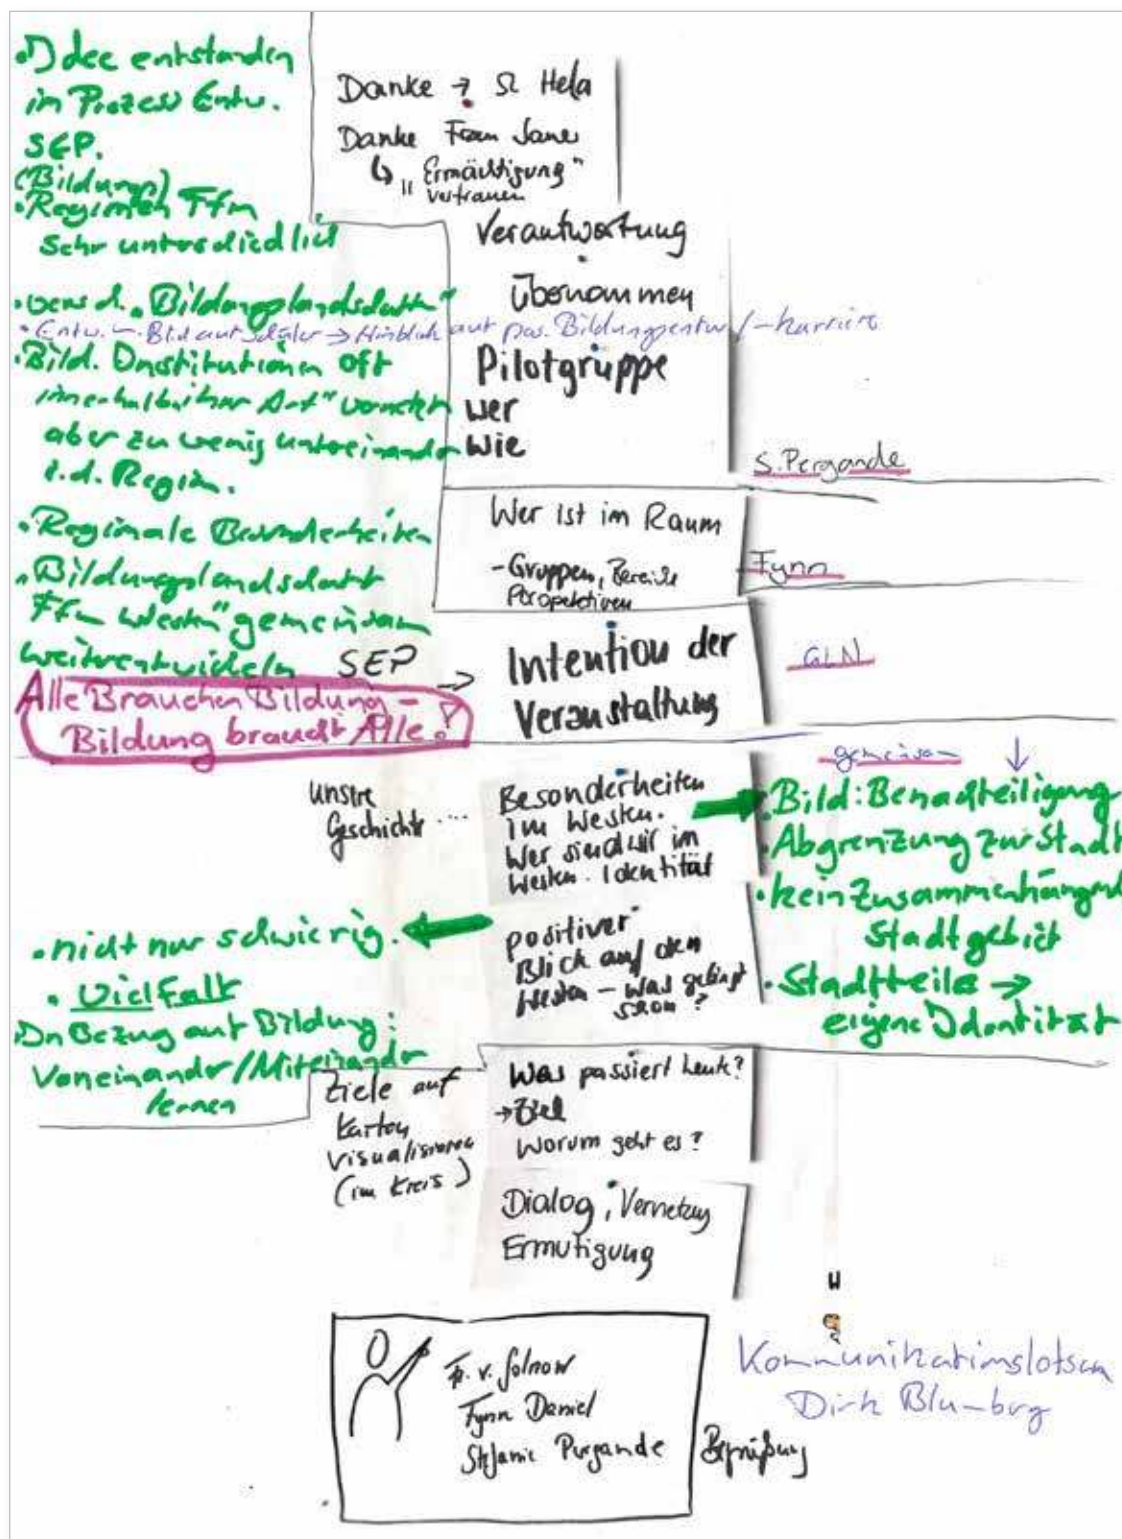 • Idee entstanden
im Prozess Entw.
SEP.
(Bildungs)
• Regionen Ffm
sehr unterschiedlich
• versch. „Bildungslandschaften"
• Entw. Blick auf Schüler → Hinblick auf pos. Bildungsentw./-karriere
• Bild. Institutionen oft
innerhalb „ihrer Art" vernetzt
aber zu wenig untereinander
i.d. Region.
• Regionale Besonderheiten
• „Bildungslandschaft
Ffm Westen" gemeinsam
weiterentwickeln
SEP →
Alle Brauchen Bildung –
Bildung braucht Alle!
Danke → Hela
Danke Frau
↳ „Ermächtigung"
vertrauen
Verantwortung
übernommen
Pilotgruppe
wer
wie
S. Pergande
Wer ist im Raum
- Gruppen, Bereiche
Perspektiven
Fynn
Intention der
Veranstaltung
GLN
gemeinsam ↓
unsre
Geschichte ....
Besonderheiten
im Westen.
Wer sind wir im
Westen. Identität
• Bild: Benachteiligung
• Abgrenzung zur Stadt
• kein Zusammenhängend
Stadtgebiet
• Stadtteile →
eigene Identität
positiver
Blick auf den
Westen – was gelingt
schon?
• nicht nur schwierig.
• Vielfalt
• In Bezug auf Bildung:
Voneinander/Miteinander
lernen
Ziele auf
Karten
visualisieren
(im Kreis)
Was passiert heute?
→ Ziel
Worum geht es?
Dialog, Vernetzung
Ermutigung
Fr. v.
Fynn Daniel
Stefanie Purgande
Begrüßung
Kommunikationslotsen
Dirk Blumberg